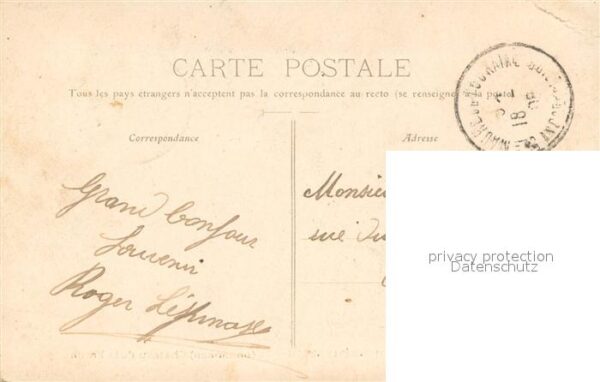 CARTE POSTALE
Tous les pays étrangers n'acceptent pas la correspondance au recto (se renseigner à la poste)
Correspondance
Adresse
Grand bonjour
Souvenir
Roger
Monsieu
rue du
privacy protection
Datenschutz